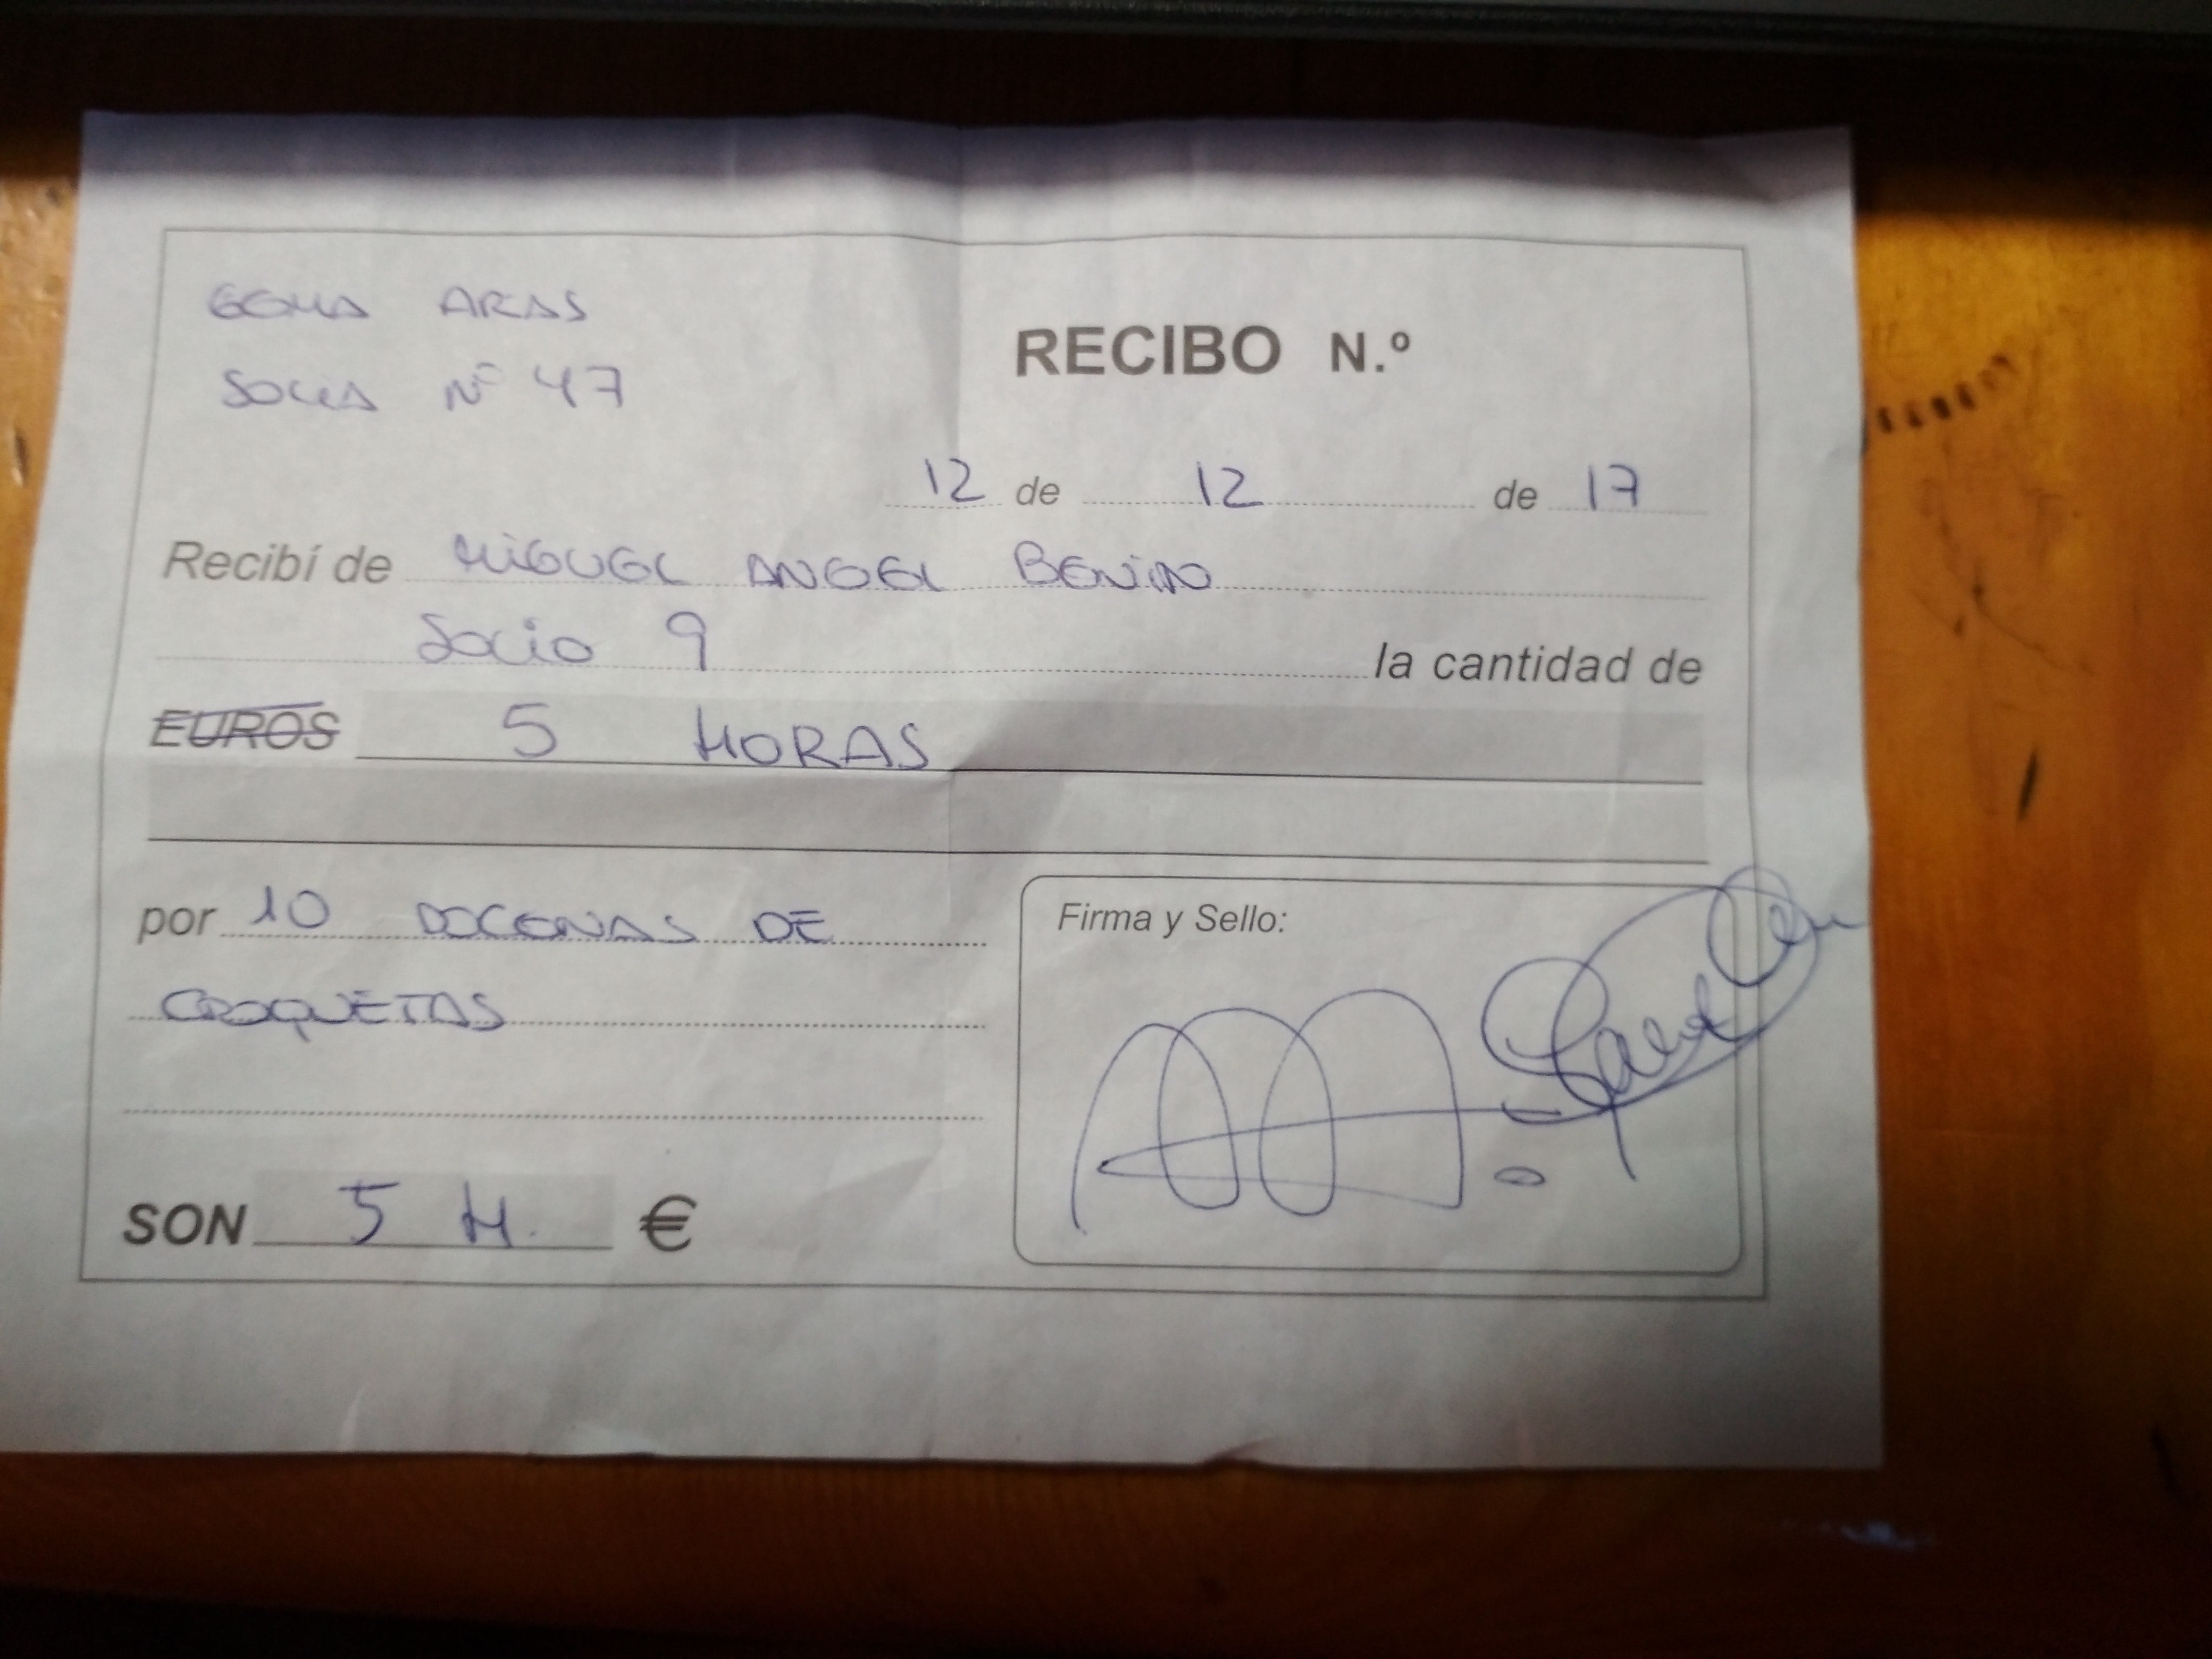 GEMA ARAS
SOCIA Nº 47
RECIBO N.º
12 de 12 de 17
Recibí de MIGUEL ANGEL
Socio 9 la cantidad de
EUROS 5 HORAS
por 10 DOCENAS DE
CROQUETAS
Firma y Sello:
SON 5 H. €